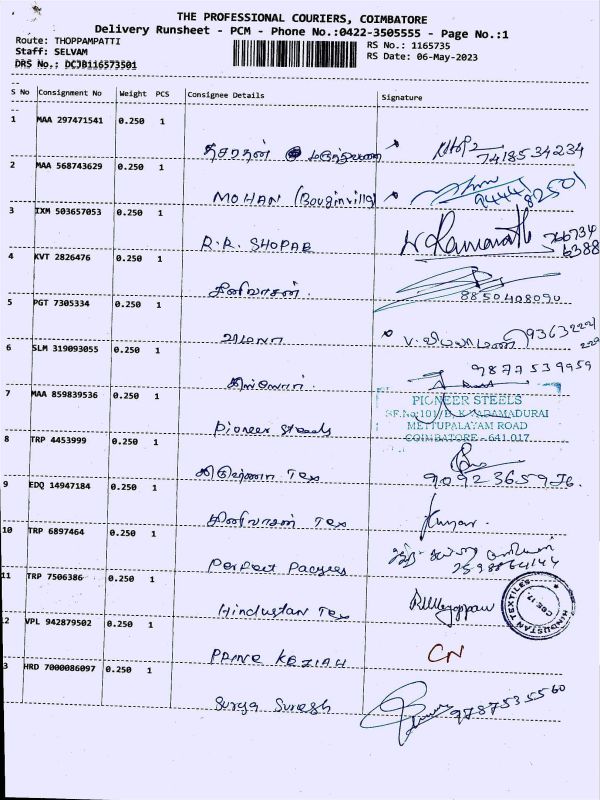 THE PROFESSIONAL COURIERS, COIMBATORE
Delivery Runsheet - PCM - Phone No.:0422-3505555 - Page No.:1
Route: THOPPAMPATTI
RS No.: 1165735
Staff: SELVAM
RS Date: 06-May-2023
DRS No.: DCJB116573501
S No Consignment No Weight PCS Consignee Details Signature
1 MAA 297471541 0.250 1
7418534234
2 MAA 568743629 0.250 1
MOHAN (Bouginvilla)
9444182501
3 IXM 503657053 0.250 1
R.R. SHOPAB
4 KVT 2826476 0.250 1
சீனிவாசன்
8850408090
5 PGT 7305334 0.250 1
விமலா
6 SLM 319093055 0.250 1
9877539959
7 MAA 859839536 0.250 1
PIONEER STEELS
SF.No:101/B, K.VADAMADURAI
METTUPALAYAM ROAD
COIMBATORE - 641 017
Pioneer Steels
8 TRP 4453999 0.250 1
கிருஷ்ணா Tex
9092365976.
9 EDQ 14947184 0.250 1
சீனிவாசன் Tex
Kumar.
10 TRP 6897464 0.250 1
Perfect
11 TRP 7506386 0.250 1
Hindustan Tex
HINDUSTAN TEXTILES
CBE-17
12 VPL 942879502 0.250 1
PRINC KEZIAH
CN
13 HRD 7000086097 0.250 1
Surya Suresh
9787535560